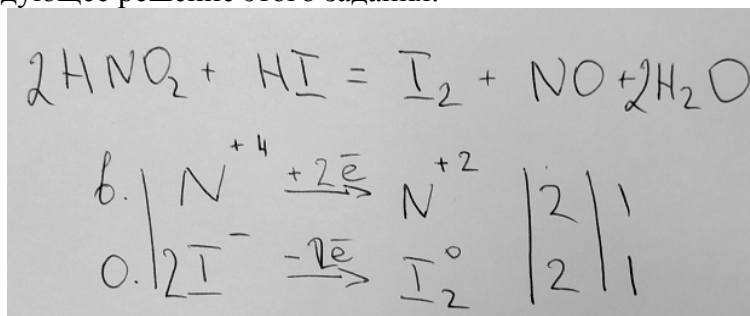 дующее решение этого задания:
2HNO₂ + HI = I₂ + NO + 2H₂O
в. | N⁺⁴ +2ē → N⁺² | 2 | 1
о. | 2I⁻ -2ē → I₂⁰ | 2 | 1